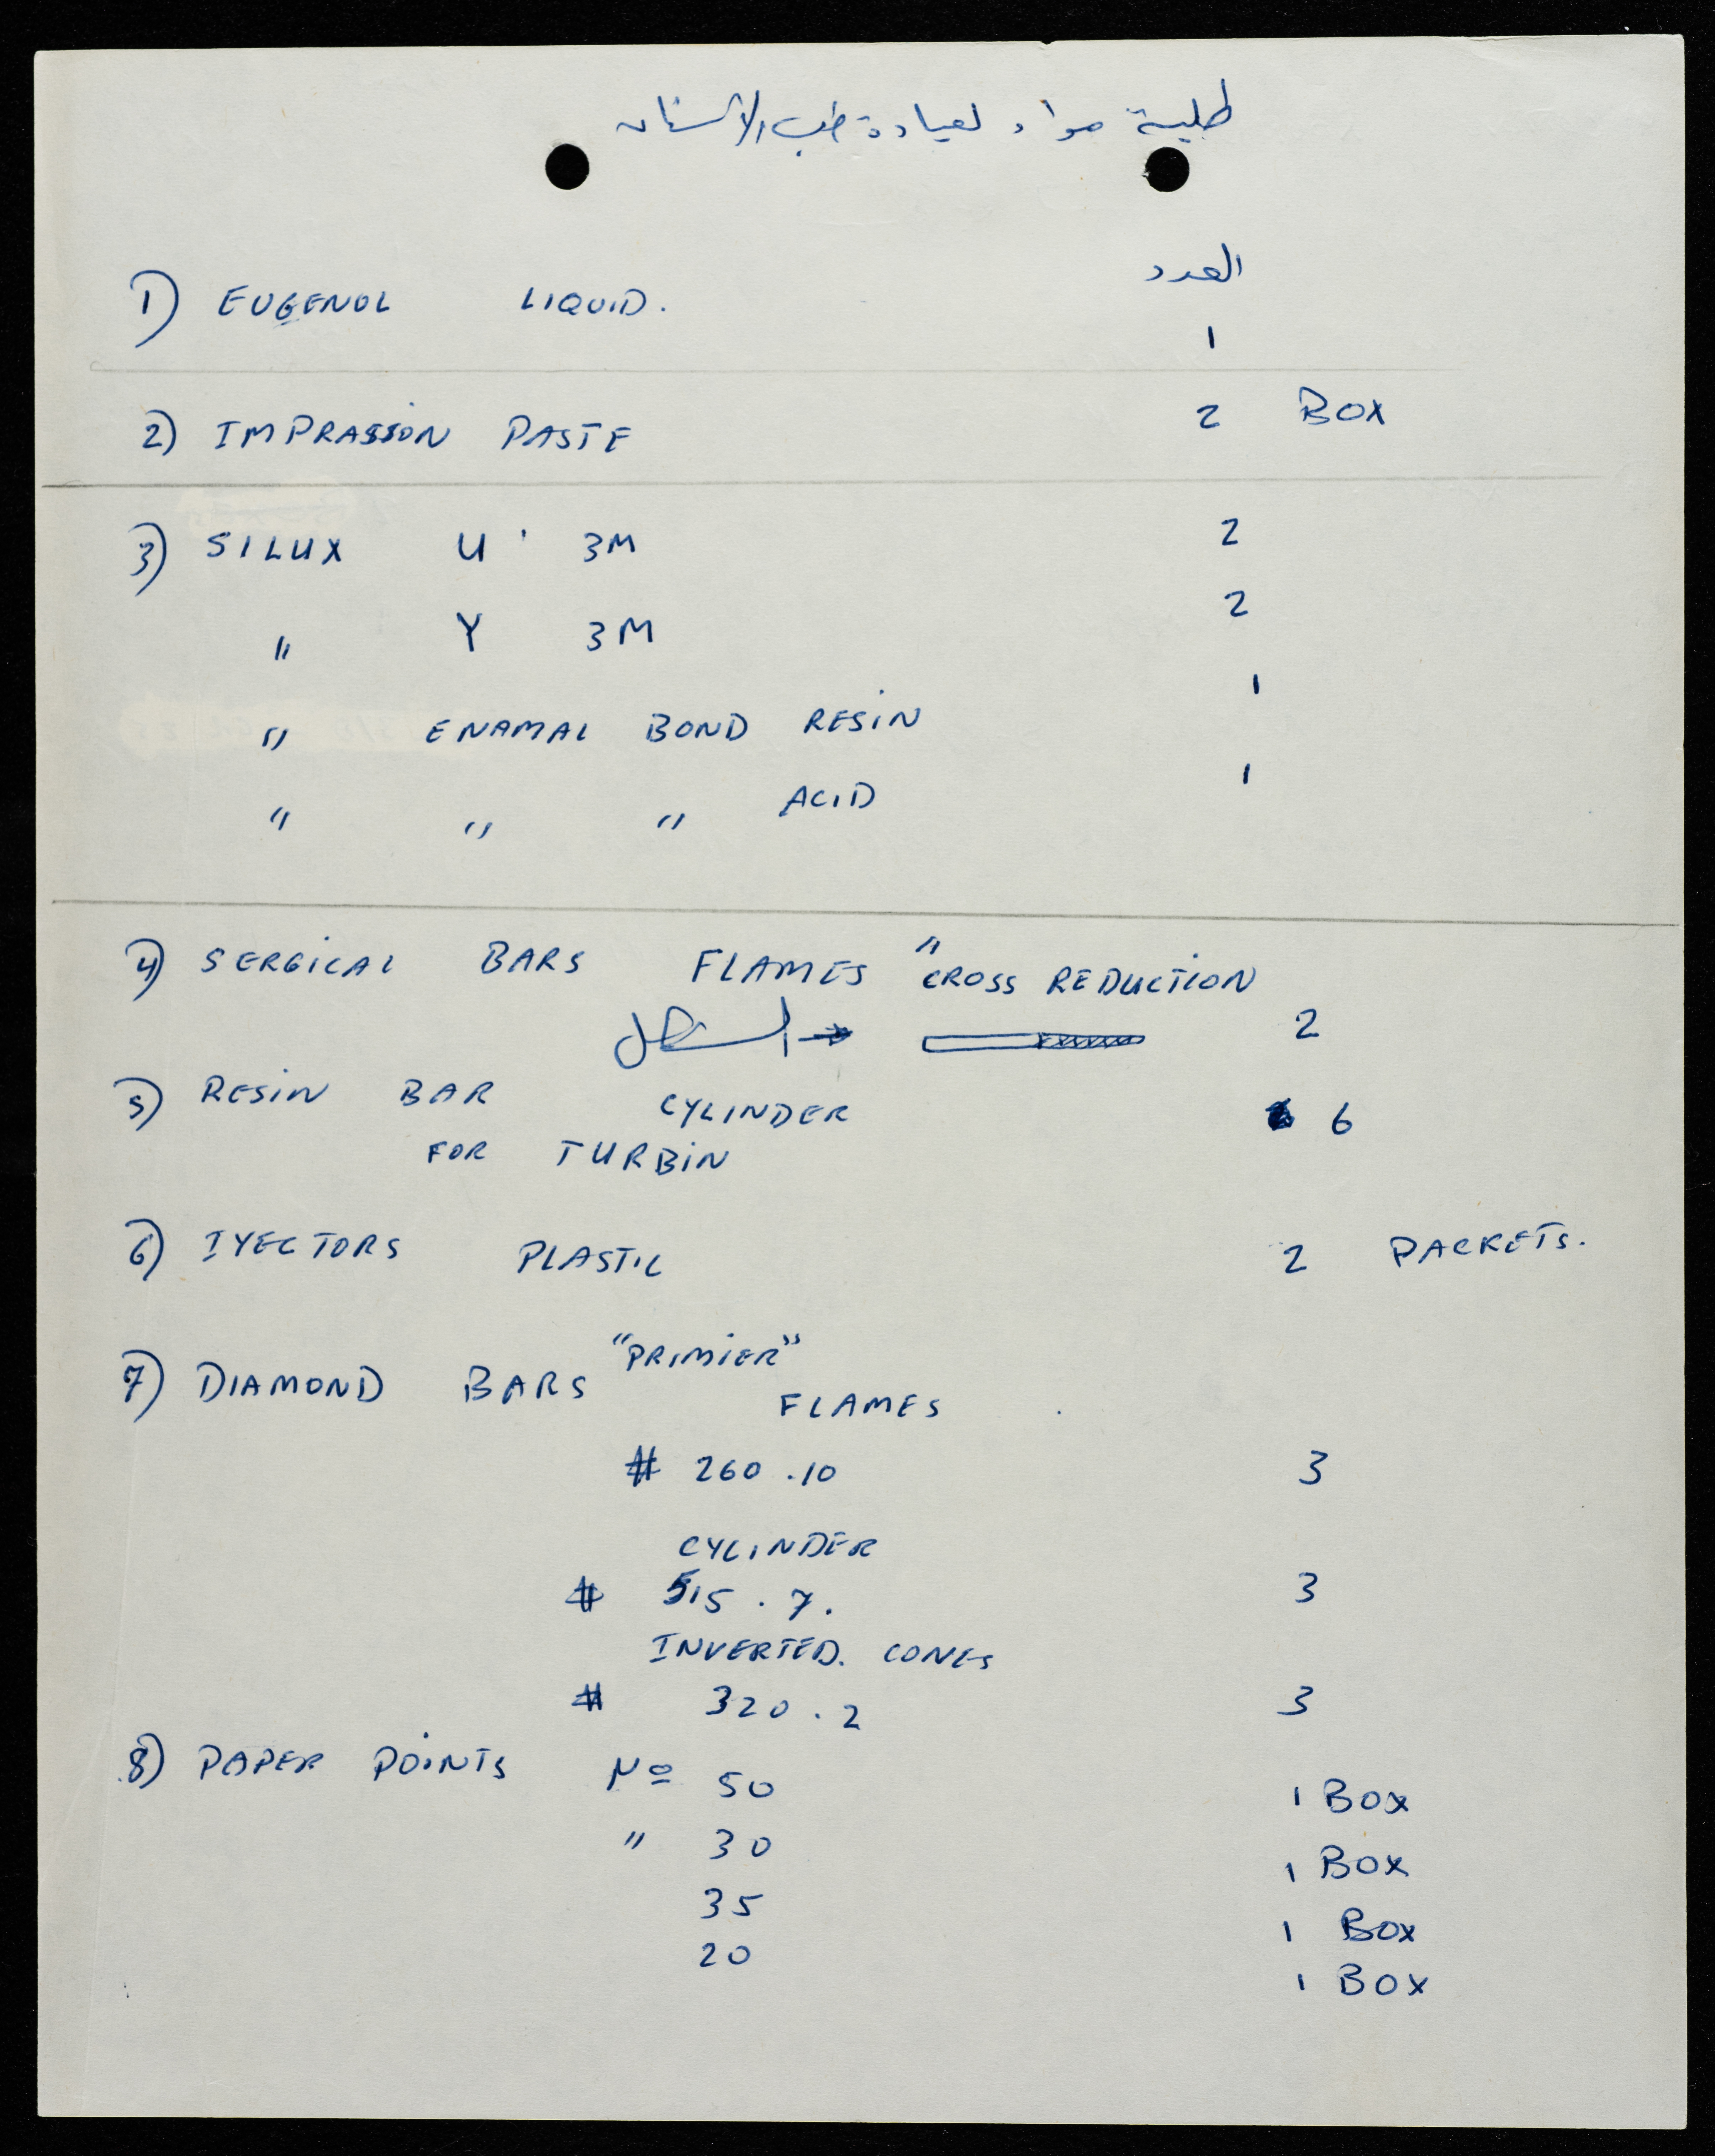 طلبية مواد لعيادة طب الاسنان
العدد
1) EUGENOL LIQUID. 1
2) IMPRASSION PASTE 2 BOX
3) SILUX U 3M 2
" Y 3M 2
" ENAMAL BOND RESIN 1
" " " ACID 1
4) SERGICAL BARS FLAMES " CROSS REDUCTION
الشكل → 2
5) RESIN BAR CYLINDER 6
FOR TURBIN
6) IYECTORS PLASTIC 2 PACKETS.
7) DIAMOND BARS "PRIMIER"
FLAMES
# 260 .10 3
CYLINDER
# 515 . 7. 3
INVERTED. CONES
# 320 . 2 3
8) PAPER POINTS Nº 50 1 BOX
" 30 1 BOX
35 1 BOX
20 1 BOX